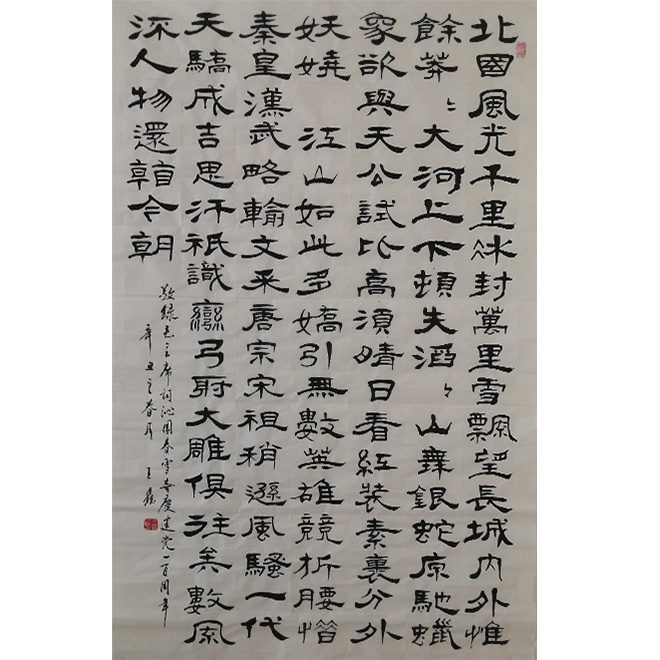 北國風光千里冰封萬里雪飄望長城內外惟
餘莽〻大河上下頓失滔〻山舞銀蛇原馳蠟
象欲與天公試比高須晴日看紅裝素裹分外
妖嬈 江山如此多嬌引無數英雄競折腰惜
秦皇漢武略輸文采唐宗宋祖稍遜風騷一代
天驕成吉思汗祇識彎弓射大雕俱往矣數風
流人物還看今朝
敬録毛主席詞沁園春雪喜慶建党一百周年
辛丑之春月 王